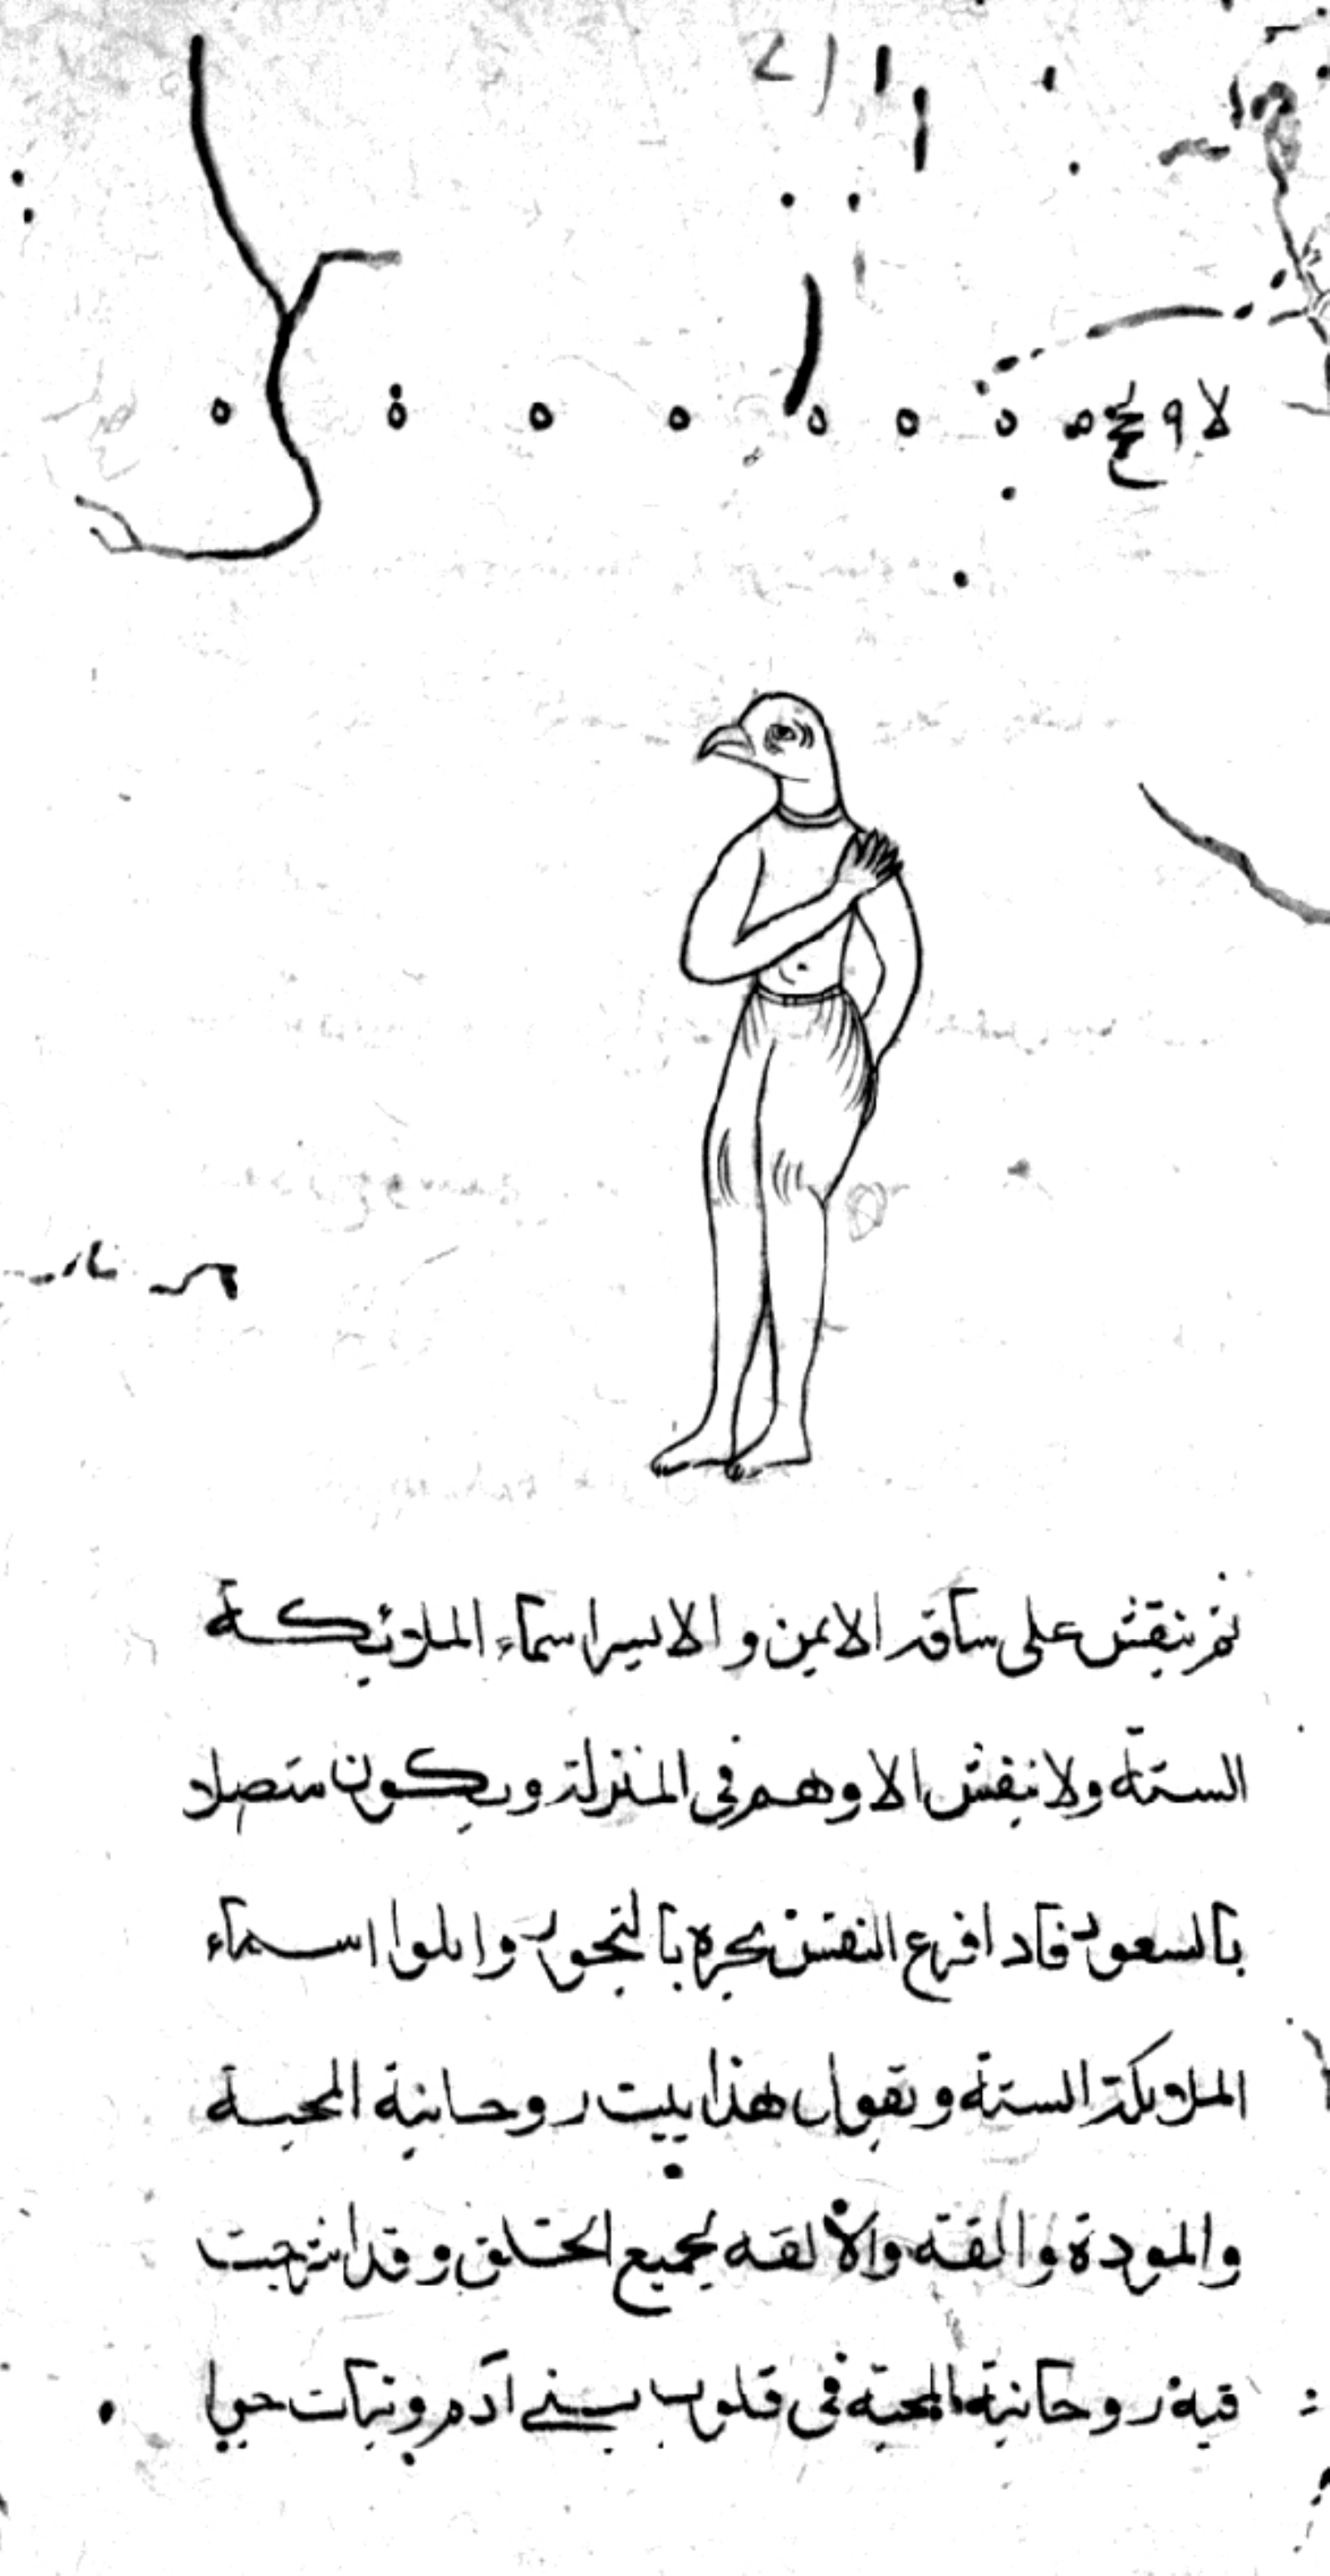 لا ٩ ح ه ه ه ه ه ه ه ه
ثم ينقش على ساقه الايمن والايسر اسماء الملائكة
الستة ولا ينقش الا وهم فى المنزلة ويكون متصلا
بالسعود فاذا فرع النقش بجره بالبخور واتلوا اسماء
الملايكة الستة ويقول هذا بيت روحانية المحبة
والمودة والفة والالفه لجميع الخلق وقد
فيه روحانية المحبة فى قلوب بني آدم وبنات حوا